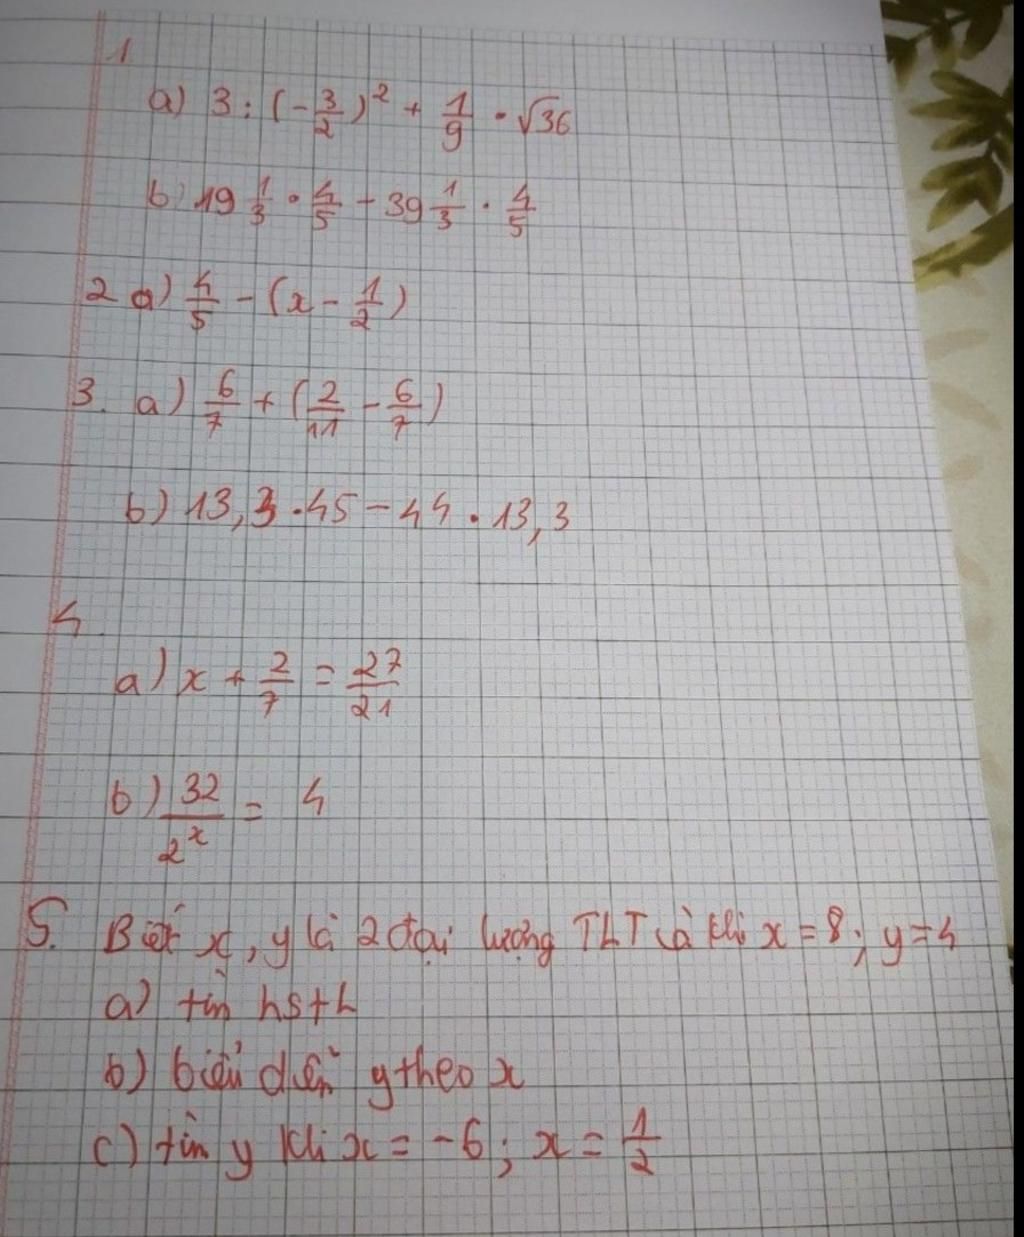 1
a) 3 : (-3/2)² + 1/9 · √36
b) 19 1/3 · 4/5 - 39 1/3 · 4/5
2 a) 4/5 - (x - 1/2)
3. a) 6/7 + (2/11 - 6/7)
b) 13,3 · 45 - 44 · 13,3
4
a) x + 2/7 = 27/21
b) 32/2ˣ = 4
5. Biết x, y là 2 đại lượng TLT và khi x = 8; y = 4
a) tìm hstl
b) biểu diễn y theo x
c) tìm y khi x = -6; x = 1/2